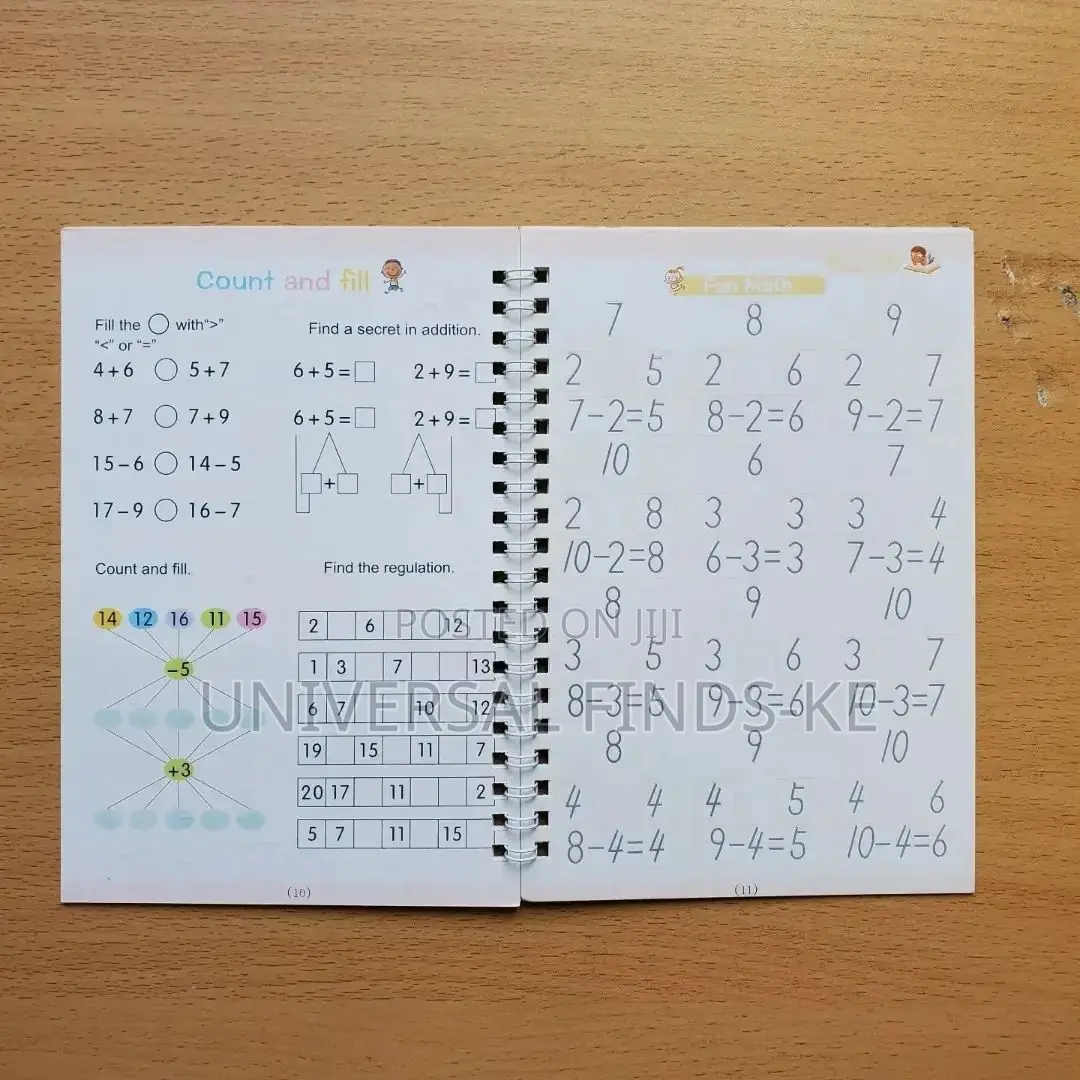 Count and fill
Fill the ◯ with“>”
“<” or “=”
4+6 ◯ 5+7
8+7 ◯ 7+9
15−6 ◯ 14−5
17−9 ◯ 16−7
Find a secret in addition.
6+5=□ 2+9=□
6+5=□ 2+9=□
□+□ □+□
Count and fill.
14 12 16 11 15
−5
+3
Find the regulation.
2 6 12
1 3 7 13
6 7 10 12
19 15 11 7
20 17 11 2
5 7 11 15
(10)
Fun Math
7 8 9
2 5 2 6 2 7
7−2=5 8−2=6 9−2=7
10 6 7
2 8 3 3 3 4
10−2=8 6−3=3 7−3=4
8 9 10
3 5 3 6 3 7
8−3=5 9−3=6 10−3=7
8 9 10
4 4 4 5 4 6
8−4=4 9−4=5 10−4=6
(11)
POSTED ON JIJI
UNIVERSAL FINDS KE